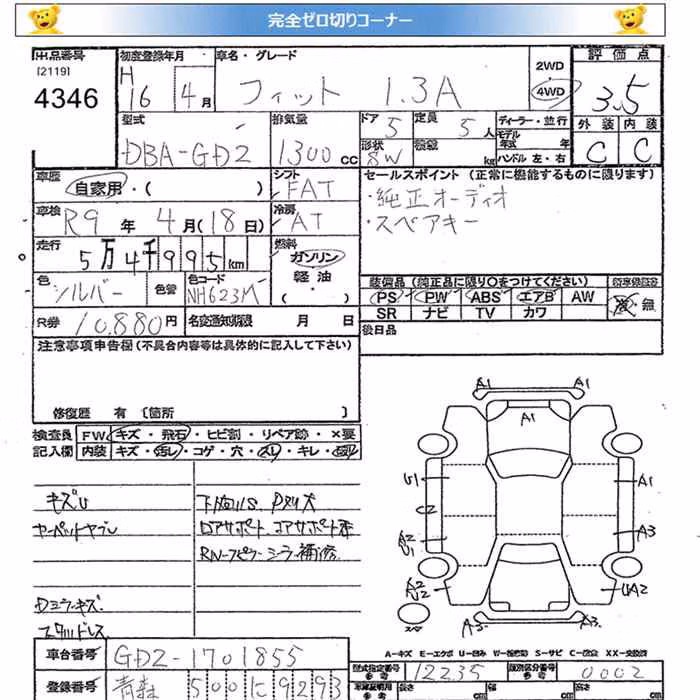 完全ゼロ切りコーナー
出品番号 初度登録年月 車名・グレード 2WD 評価点
[2119] H 4WD
4346 16 4月 フィット 1.3A 3.5
型式 排気量 ドア 5 定員 5人 ディーラー・並行 外装 内装
モデル年式 年式
DBA-GD2 1300cc 形状 8W 積載 kg ハンドル 左・右 C C
車歴 自家用・( ) シフト FAT セールスポイント (正常に機能するものに限ります)
・純正オーディオ
車検 R9年 4月(18日) 冷房 AT ・スペアキー
走行 5万4千995km 燃料 ガソリン
軽油
( ・ )
色 シルバー 色替 色コード NH623M 装備品 (純正品に限り〇をつけてください)
PS PW ABS エアB AW 無
SR ナビ TV カワ
R券 10,880円 名変通知期限 月 日
後日品
注意事項申告欄 (不具合内容等は具体的に記入して下さい)
修復歴 有 [箇所 ]
検査員 FW キズ・飛石・ヒビ割・リペア跡・×要
記入欄 内装 キズ・汚レ・コゲ・穴・スレ・キレ・
A1 A1
A1
U1 A1
C2
A2 U1 A3
A2 U2 UA2
スペア A3 A3
キズU
Dミラーキズ
スタッドレス
A-キズ E-エクボ U-凹み W-補修跡 S-サビ C-腐食 XX-交換済
車台番号 GD2-1701855 型式指定番号 参考 12235 類別区分番号 参考 0002
登録番号 青森 500 に 9293 車体証明用 参考 長さ cm 幅 cm 高さ cm